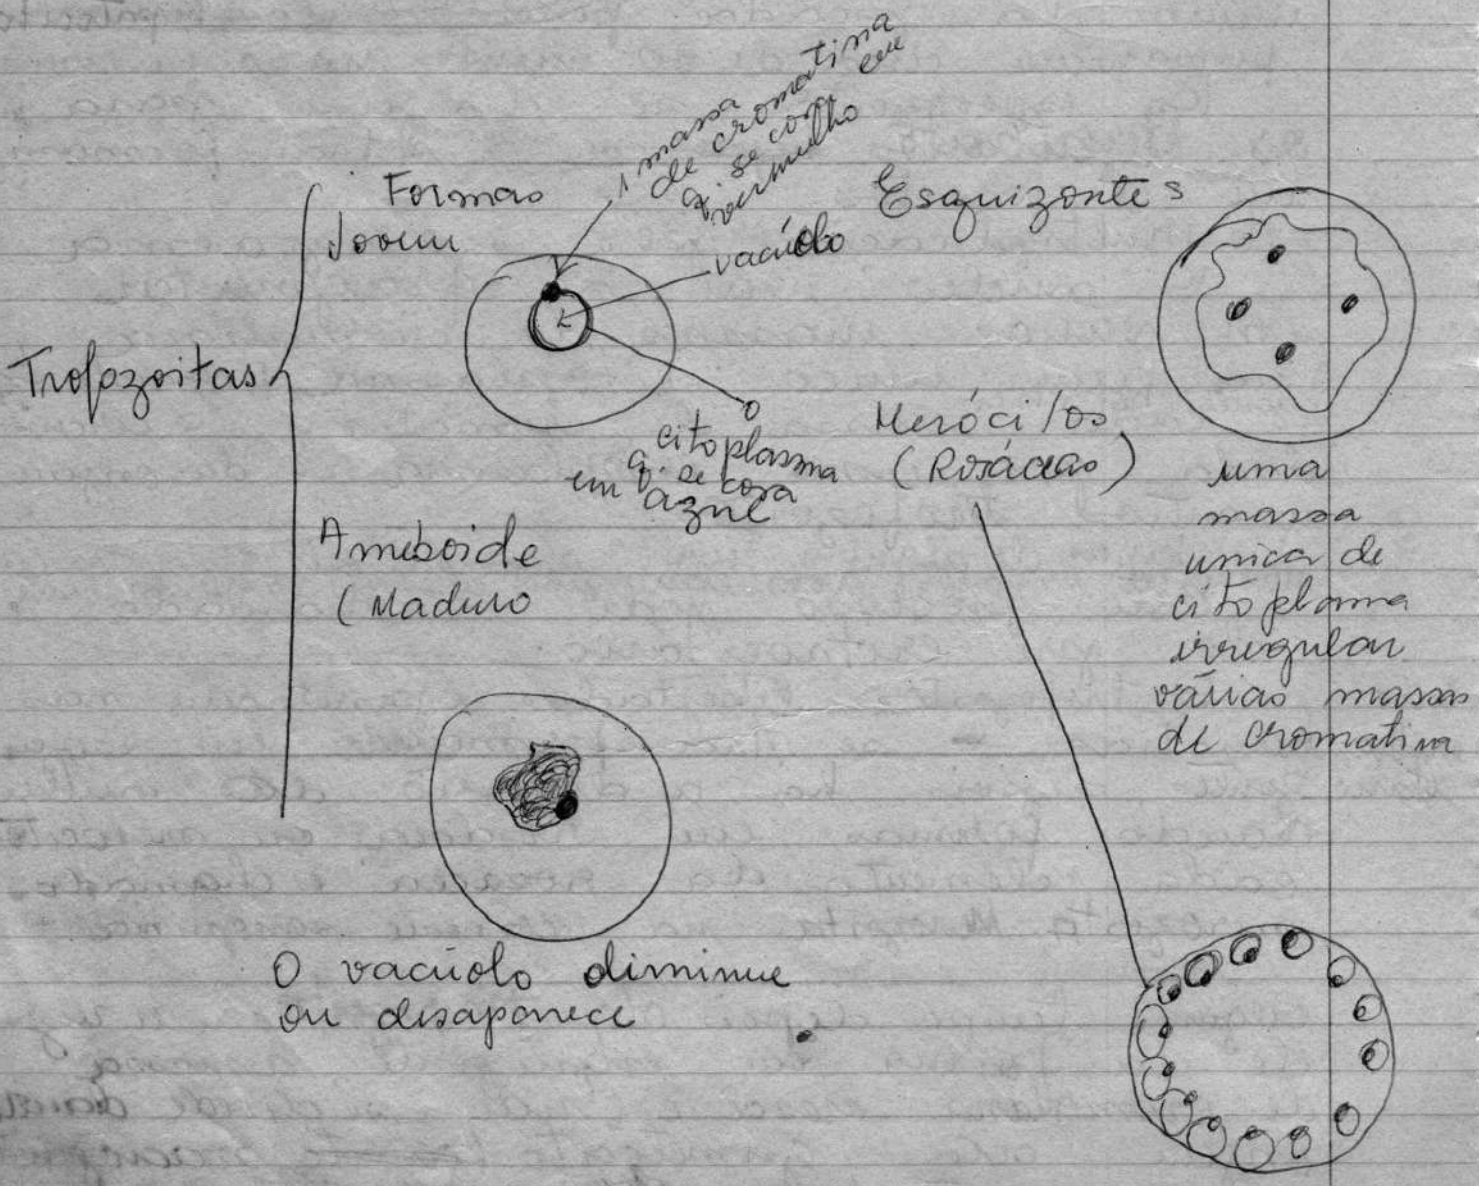 Trofozoitas
Formas
Jovem
1 massa
de cromatina
q. se cora em
vermelho
vacúolo
citoplasma
q. se cora
em azul
Ameboide
(Maduro
O vacúolo diminue
ou desaparece
Esquizontes
uma
massa
unica de
citoplasma
irregular
várias massas
de cromatina
Merócitos
(Rosáceas)